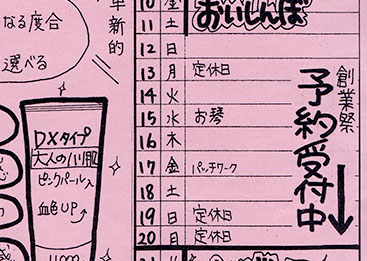 なる度合
選べる
革新的
DXタイプ
大人の小肌
ピンクパール入
血色UP
10 金
おいしんぼ
11 土
12 日
13 月 定休日
14 火
15 水 お琴
16 木
17 金 パッチワーク
18 土
19 日 定休日
20 月 定休日
創業祭
予約受付中